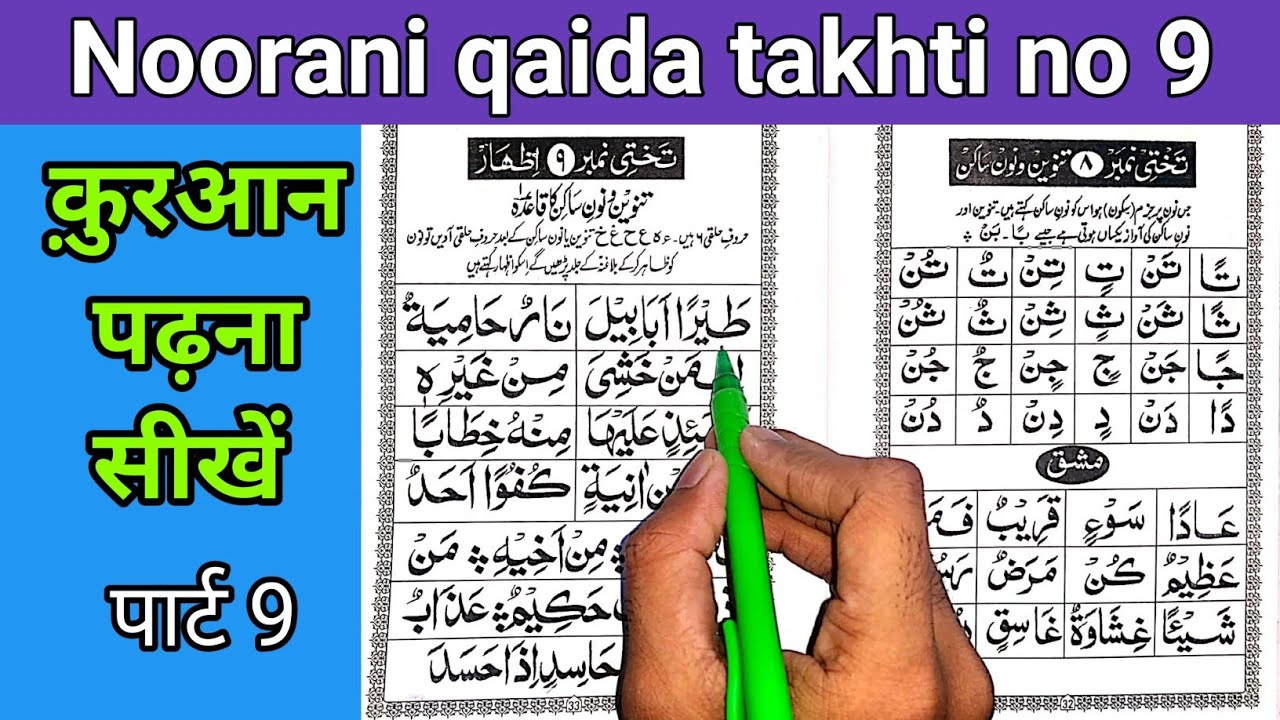 Noorani qaida takhti no 9
क़ुरआन
पढ़ना
सीखें
पार्ट 9
تختی نمبر ۹ اِظہار
تنوین و نون ساکن کا قاعدہ
حروفِ حلقی ۶ ہیں۔ ء ہ ع ح غ خ تنوین یا نون ساکن کے بعد حروفِ حلقی آویں تو نون
کو ظاہر کر کے بلا غنہ کے جلد پڑھیں گے اسکو اظہار کہتے ہیں
طَيْرًا اَبَابِيْلَ نَارٌ حَامِيَةٌ
مَنْ خَشِىَ مِنْ غَيْرِهٖ
عَلَيْهَا مِنْهُ خِطَابًا
اٰنِيَةٍ كُفُوًا اَحَدٌ
مِنْ اَخِيْهِ مَنْ
حَكِيْمٌ عَذَابٌ
حَاسِدٍ اِذَا حَسَدَ
33
تختی نمبر ۸ تنوین و نون ساکن
جس نون پر جزم (سکون) ہو اس کو نون ساکن کہتے ہیں۔ تنوین اور
نون ساکن کی آواز یکساں ہوتی ہے جیسے بًا۔ بَنْ
تًا تَنْ تٍ تِنْ تٌ تُنْ
ثًا ثَنْ ثٍ ثِنْ ثٌ ثُنْ
جًا جَنْ جٍ جِنْ جٌ جُنْ
دًا دَنْ دٍ دِنْ دٌ دُنْ
مشق
عَادًا سَوْءٍ قَرِيْبٌ
عَظِيْمٌ كُنْ مَرَضٌ
شَيْئًا غِشَاوَةٌ غَاسِقٍ
32